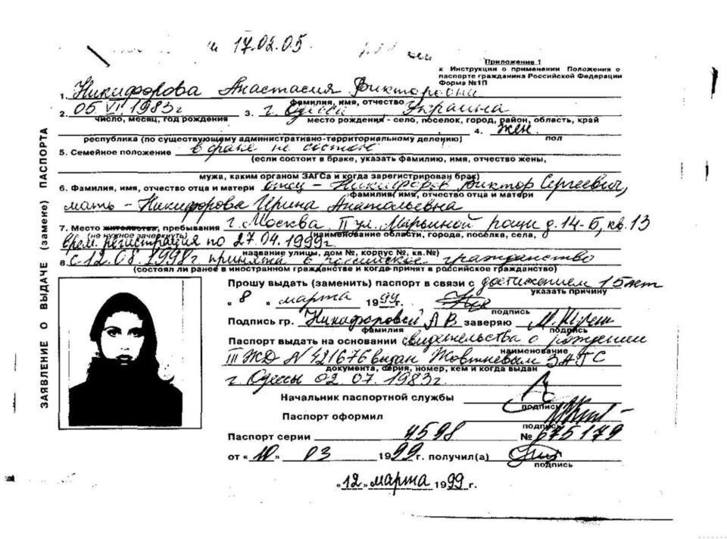 17.02.05.
Приложение 1
к Инструкции о применении Положения о
паспорте гражданина Российской Федерации
Форма №1П
1. Никифорова Анастасия Викторовна
фамилия, имя, отчество
2. 05 VI 1983г 3. г. Одесса Украина
число, месяц, год рождения место рождения - село, поселок, город, район, область, край
4. жен.
республика (по существующему административно-территориальному делению) пол
5. Семейное положение в браке не состою
(если состоит в браке, указать фамилию, имя, отчество жены,
мужа, каким органом ЗАГСа и когда зарегистрирован брак)
6. Фамилия, имя, отчество отца и матери отец - Никифоров Виктор Сергеевич,
фамилия, имя, отчество отца и матери
мать - Никифорова Ирина Анатольевна
7. Место жительства, пребывания г. Москва II ул. Марьиной рощи д. 14-Б, кв. 13
(не нужное зачеркнуть) (наименование области, города, поселка, села,
врем. регистрация по 27.04.1999г.
название улицы, дом №, корпус №, кв.№)
8. с 12.08.1998г принята в российское гражданство
(состоял ли ранее в иностранном гражданстве и когда принят в российское гражданство)
ЗАЯВЛЕНИЕ О ВЫДАЧЕ (замене) ПАСПОРТА
Прошу выдать (заменить) паспорт в связи с достижением 15 лет
указать причину
"8" марта 1999г.
подпись
Подпись гр. Никифоровой А В заверяю
фамилия подпись
Паспорт выдать на основании свидетельства о рождении
наименование
III ЖД № 421676 выдан Жовтневым ЗАГС
документа, серия, номер, кем и когда выдан
г. Одессы 02.07.1983г.
Начальник паспортной службы
подпись
Паспорт оформил
подпись
Паспорт серии 4598 № 675179
от "10" 03 1999г. получил(а)
подпись
"12" марта 1999 г.